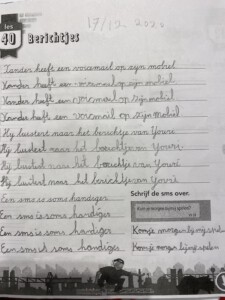 17/12 2020
les
40 Berichtjes
Xander heeft een voicemail op zijn mobiel
Xander heeft een voicemail op zijn mobiel
Xander heeft een voicemail op zijn mobiel
Xander heeft een voicemail op zijn mobiel
Hij luistert naar het berichtje van Youri
Hij luistert naar het berichtje van Youri.
Hij luistert naar het berichtje van Youri
Hij luistert naar het berichtje van Youri
Een sms is soms handiger.
Een sms is soms handiger
Een sms is soms handiges
Een sms is soms handiges
Schrijf de sms over.
Kom je morgen bij mij spelen?
Kom je morgen bij mij spe
Kom je morgen bij mij spelen